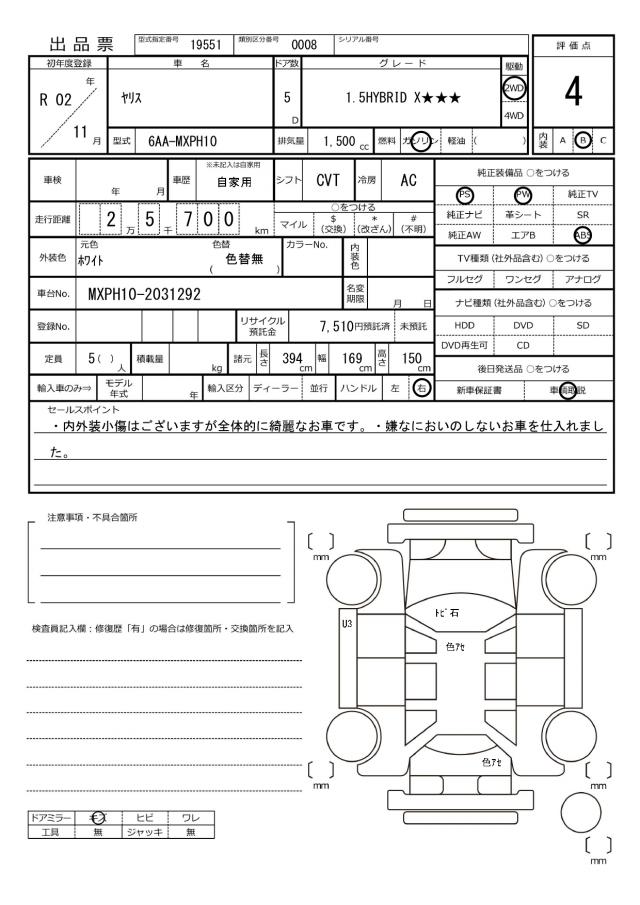 出品票 型式指定番号 19551 類別区分番号 0008 シリアル番号
評価点
4
初年度登録 車名 ドア数 グレード 駆動
R 02 年 / 11 月 ヤリス 5 D 1.5HYBRID X★★★ 2WD 4WD
型式 6AA-MXPH10 排気量 1,500 cc 燃料 ガソリン 軽油 ( ) 内装 A B C
車検 年 月 車歴 ※未記入は自家用 自家用 シフト CVT 冷房 AC
走行距離 2 万 5 千 7 0 0 km ○をつける マイル $ (交換) * (改ざん) # (不明)
外装色 元色 ホワイト 色替 ( 色替無 ) カラーNo. 内装色
車台No. MXPH10-2031292 名変期限 月 日
登録No. リサイクル預託金 7,510円預託済 未預託
定員 5 ( ) 人 積載量 kg 諸元 長さ 394 cm 幅 169 cm 高さ 150 cm
輸入車のみ⇒ モデル年式 年 輸入区分 ディーラー 並行 ハンドル 左 右
純正装備品 ○をつける
PS PW 純正TV
純正ナビ 革シート SR
純正AW エアB ABS
TV種類(社外品含む)○をつける
フルセグ ワンセグ アナログ
ナビ種類(社外品含む)○をつける
HDD DVD SD
DVD再生可 CD
後日発送品 ○をつける
新車保証書 車輌取説
セールスポイント
・内外装小傷はございますが全体的に綺麗なお車です。・嫌なにおいのしないお車を仕入れまし
た。
注意事項・不具合箇所
検査員記入欄:修復歴「有」の場合は修復箇所・交換箇所を記入
ドアミラー キズ ヒビ ワレ
工具 無 ジャッキ 無
〔 〕 mm
〔 〕 mm
トビ石
U3
色アセ
色アセ
〔 〕 mm
〔 〕 mm
〔 〕 mm